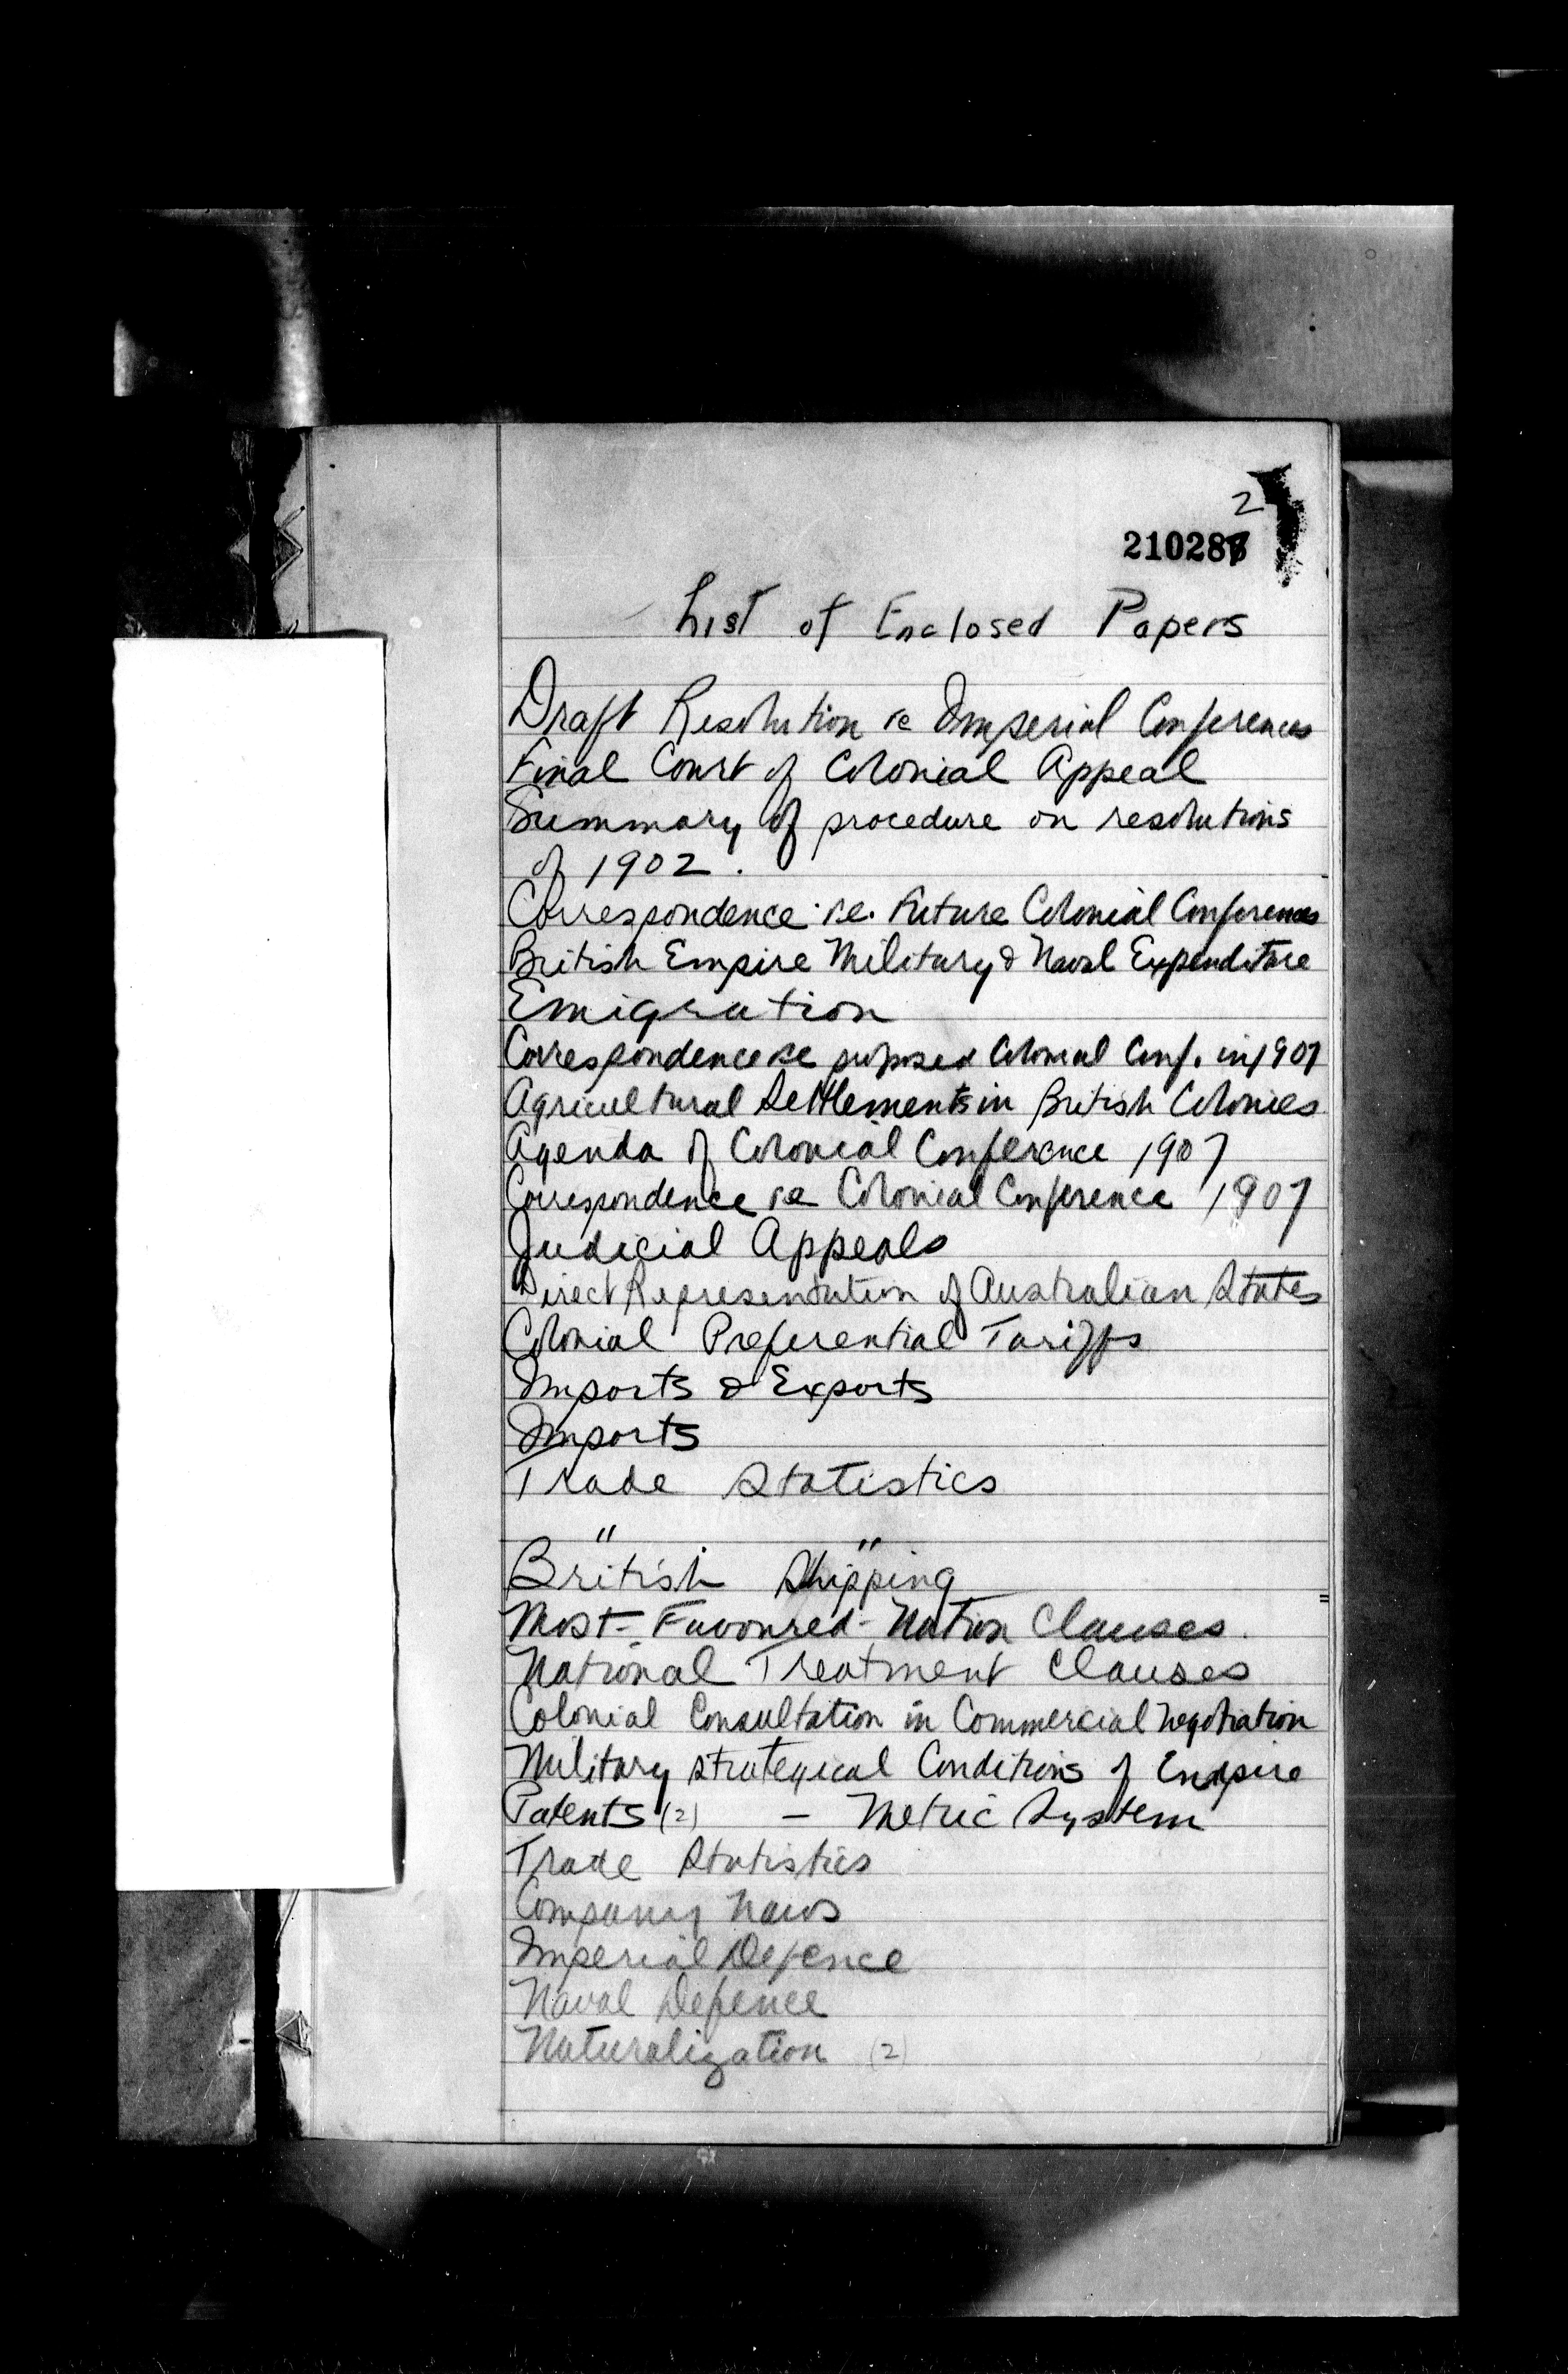 2
210287
List of Enclosed Papers
Draft Resolution re Imperial Conferences
Final Court of Colonial Appeal
Summary of procedure on resolutions
of 1902.
Correspondence re. Future Colonial Conferences
British Empire Military & Naval Expenditure
Emigration
Correspondence re proposed Colonial Conf. in 1907
Agricultural Settlements in British Colonies
Agenda of Colonial Conference 1907
Correspondence re Colonial Conference 1907
Judicial Appeals
Direct Representation of Australian States
Colonial Preferential Tariffs
Imports & Exports
Imports
Trade Statistics
" "
British Shipping
Most-Favoured-Nation Clauses.
National Treatment Clauses
Colonial Consultation in Commercial Negotiation
Military strategical Conditions of Empire
Patents (2) - Metric System
Trade Statistics
Company Laws
Imperial Defence
Naval Defence
Naturalization (2)